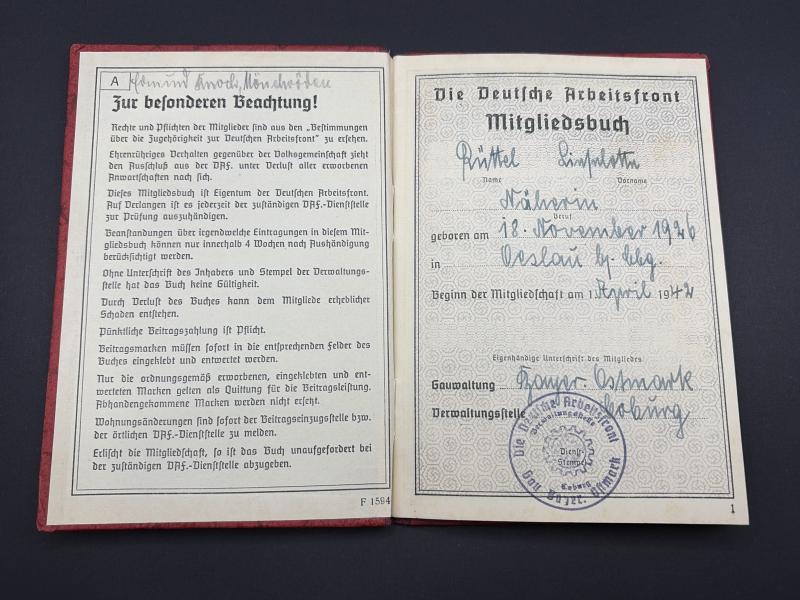 A Edmund Knoch, Mönchröden
Zur besonderen Beachtung!
Rechte und Pflichten der Mitglieder sind aus den „Bestimmungen
über die Zugehörigkeit zur Deutschen Arbeitsfront" zu ersehen.
Ehrenrühriges Verhalten gegenüber der Volksgemeinschaft zieht
den Ausschluß aus der DAF. unter Verlust aller erworbenen
Anwartschaften nach sich.
Dieses Mitgliedsbuch ist Eigentum der Deutschen Arbeitsfront.
Auf Verlangen ist es jederzeit der zuständigen DAF.-Dienststelle
zur Prüfung auszuhändigen.
Beanstandungen über irgendwelche Eintragungen in diesem Mit-
gliedsbuch können nur innerhalb 4 Wochen nach Aushändigung
berücksichtigt werden.
Ohne Unterschrift des Inhabers und Stempel der Verwaltungs-
stelle hat das Buch keine Gültigkeit.
Durch Verlust des Buches kann dem Mitgliede erheblicher
Schaden entstehen.
Pünktliche Beitragszahlung ist Pflicht.
Beitragsmarken müssen sofort in die entsprechenden Felder des
Buches eingeklebt und entwertet werden.
Nur die ordnungsgemäß erworbenen, eingeklebten und ent-
werteten Marken gelten als Quittung für die Beitragsleistung.
Abhandengekommene Marken werden nicht ersetzt.
Wohnungsänderungen sind sofort der Beitragseinzugsstelle bzw.
der örtlichen DAF.-Dienststelle zu melden.
Erlischt die Mitgliedschaft, so ist das Buch unaufgefordert bei
der zuständigen DAF.-Dienststelle abzugeben.
F 1594
Die Deutsche Arbeitsfront
Mitgliedsbuch
Rüttel Lieselotte
Name Vorname
Näherin
Beruf
geboren am 18. November 1926
in Oeslau b. Cbg.
Beginn der Mitgliedschaft am 1. April 1942
Eigenhändige Unterschrift des Mitgliedes
Gauwaltung Bayer. Ostmark
Verwaltungsstelle Coburg
Die Deutsche Arbeitsfront
Verwaltungsstelle
Dienst-
Stempel
Coburg
Gau Bayer. Ostmark
1